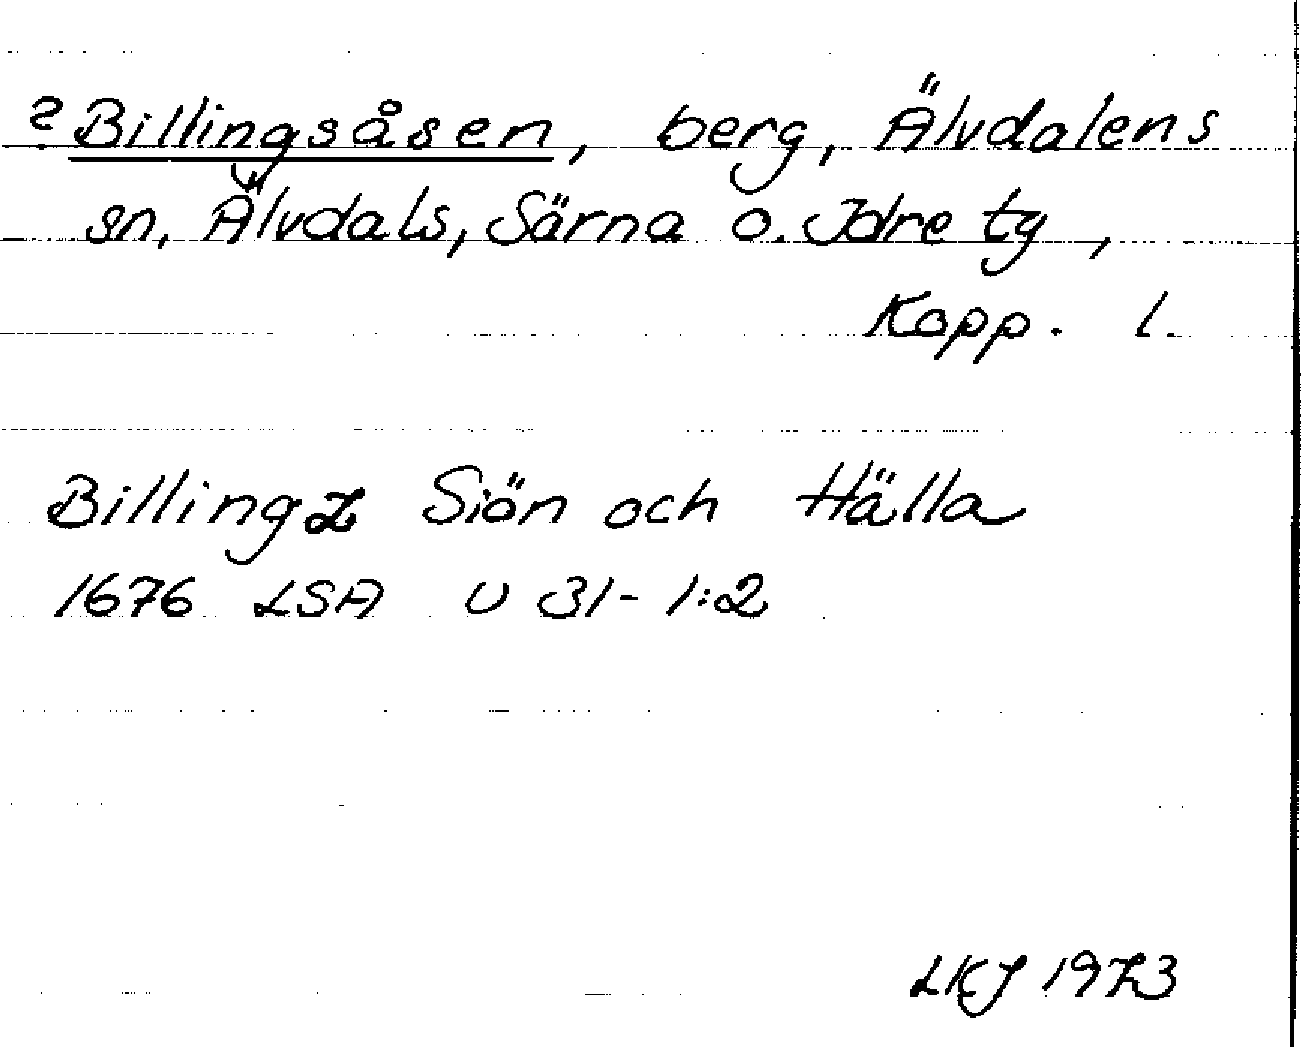 ? Billingsåsen, berg, Älvdalens
sn, Älvdals, Särna o. Idre tg,
Kopp. l.
Billingz Siön och Hälla
1676 LSA U 31-1:2
LKJ 1973